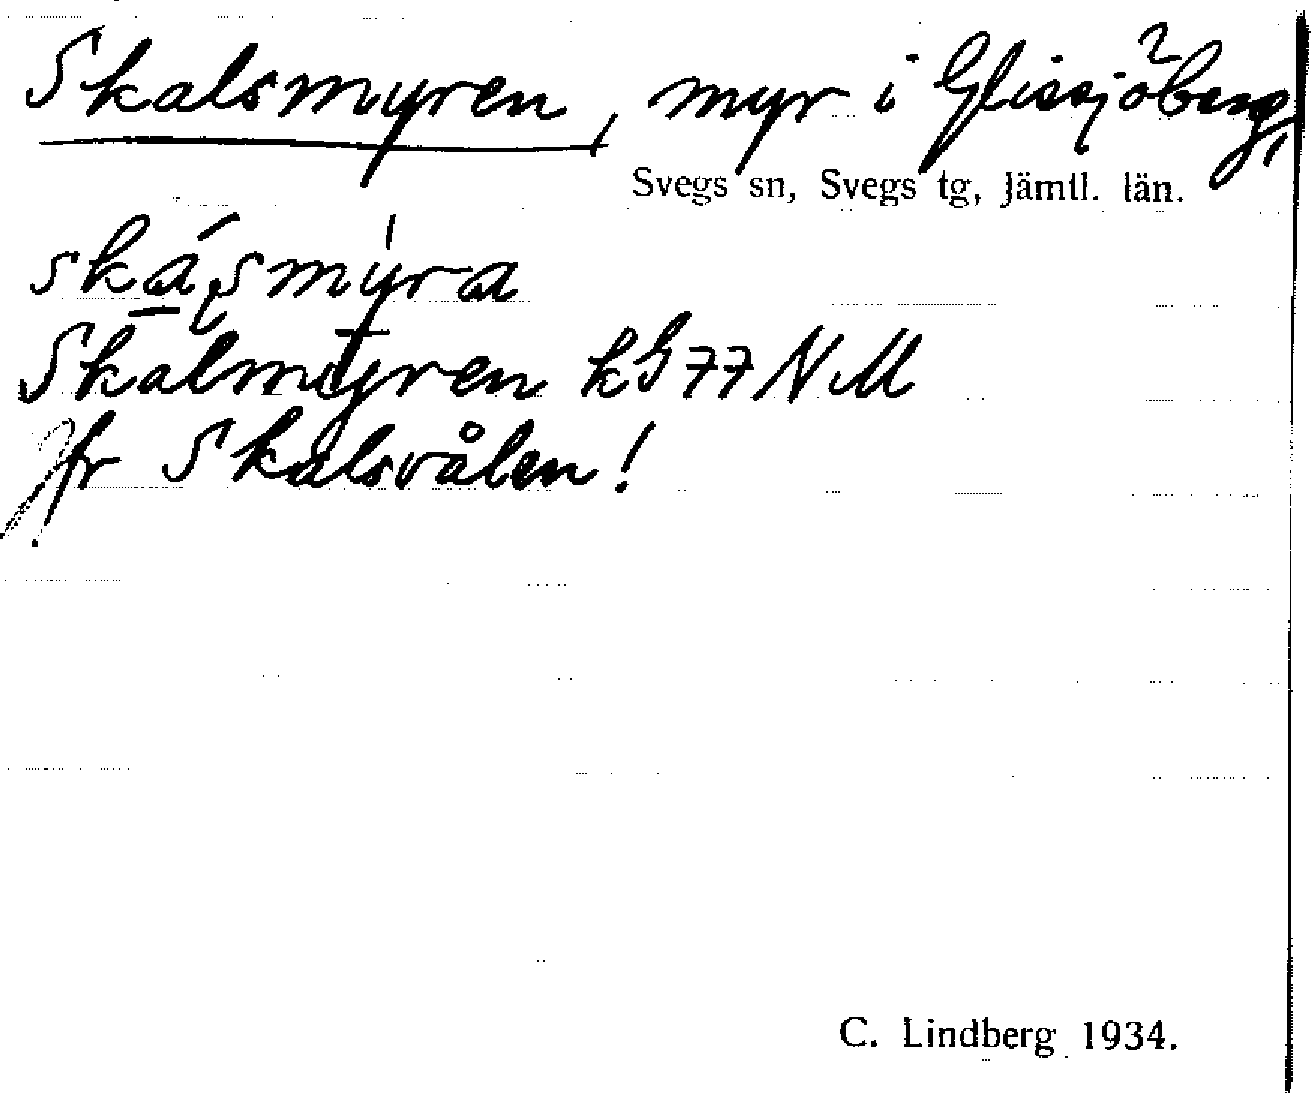 Skalsmyren, myr i Glissjöberg,
Svegs sn, Svegs tg, Jämtl. län.
Skalmyren kG77NM
Jfr Skalsvålen!
C. Lindberg 1934.